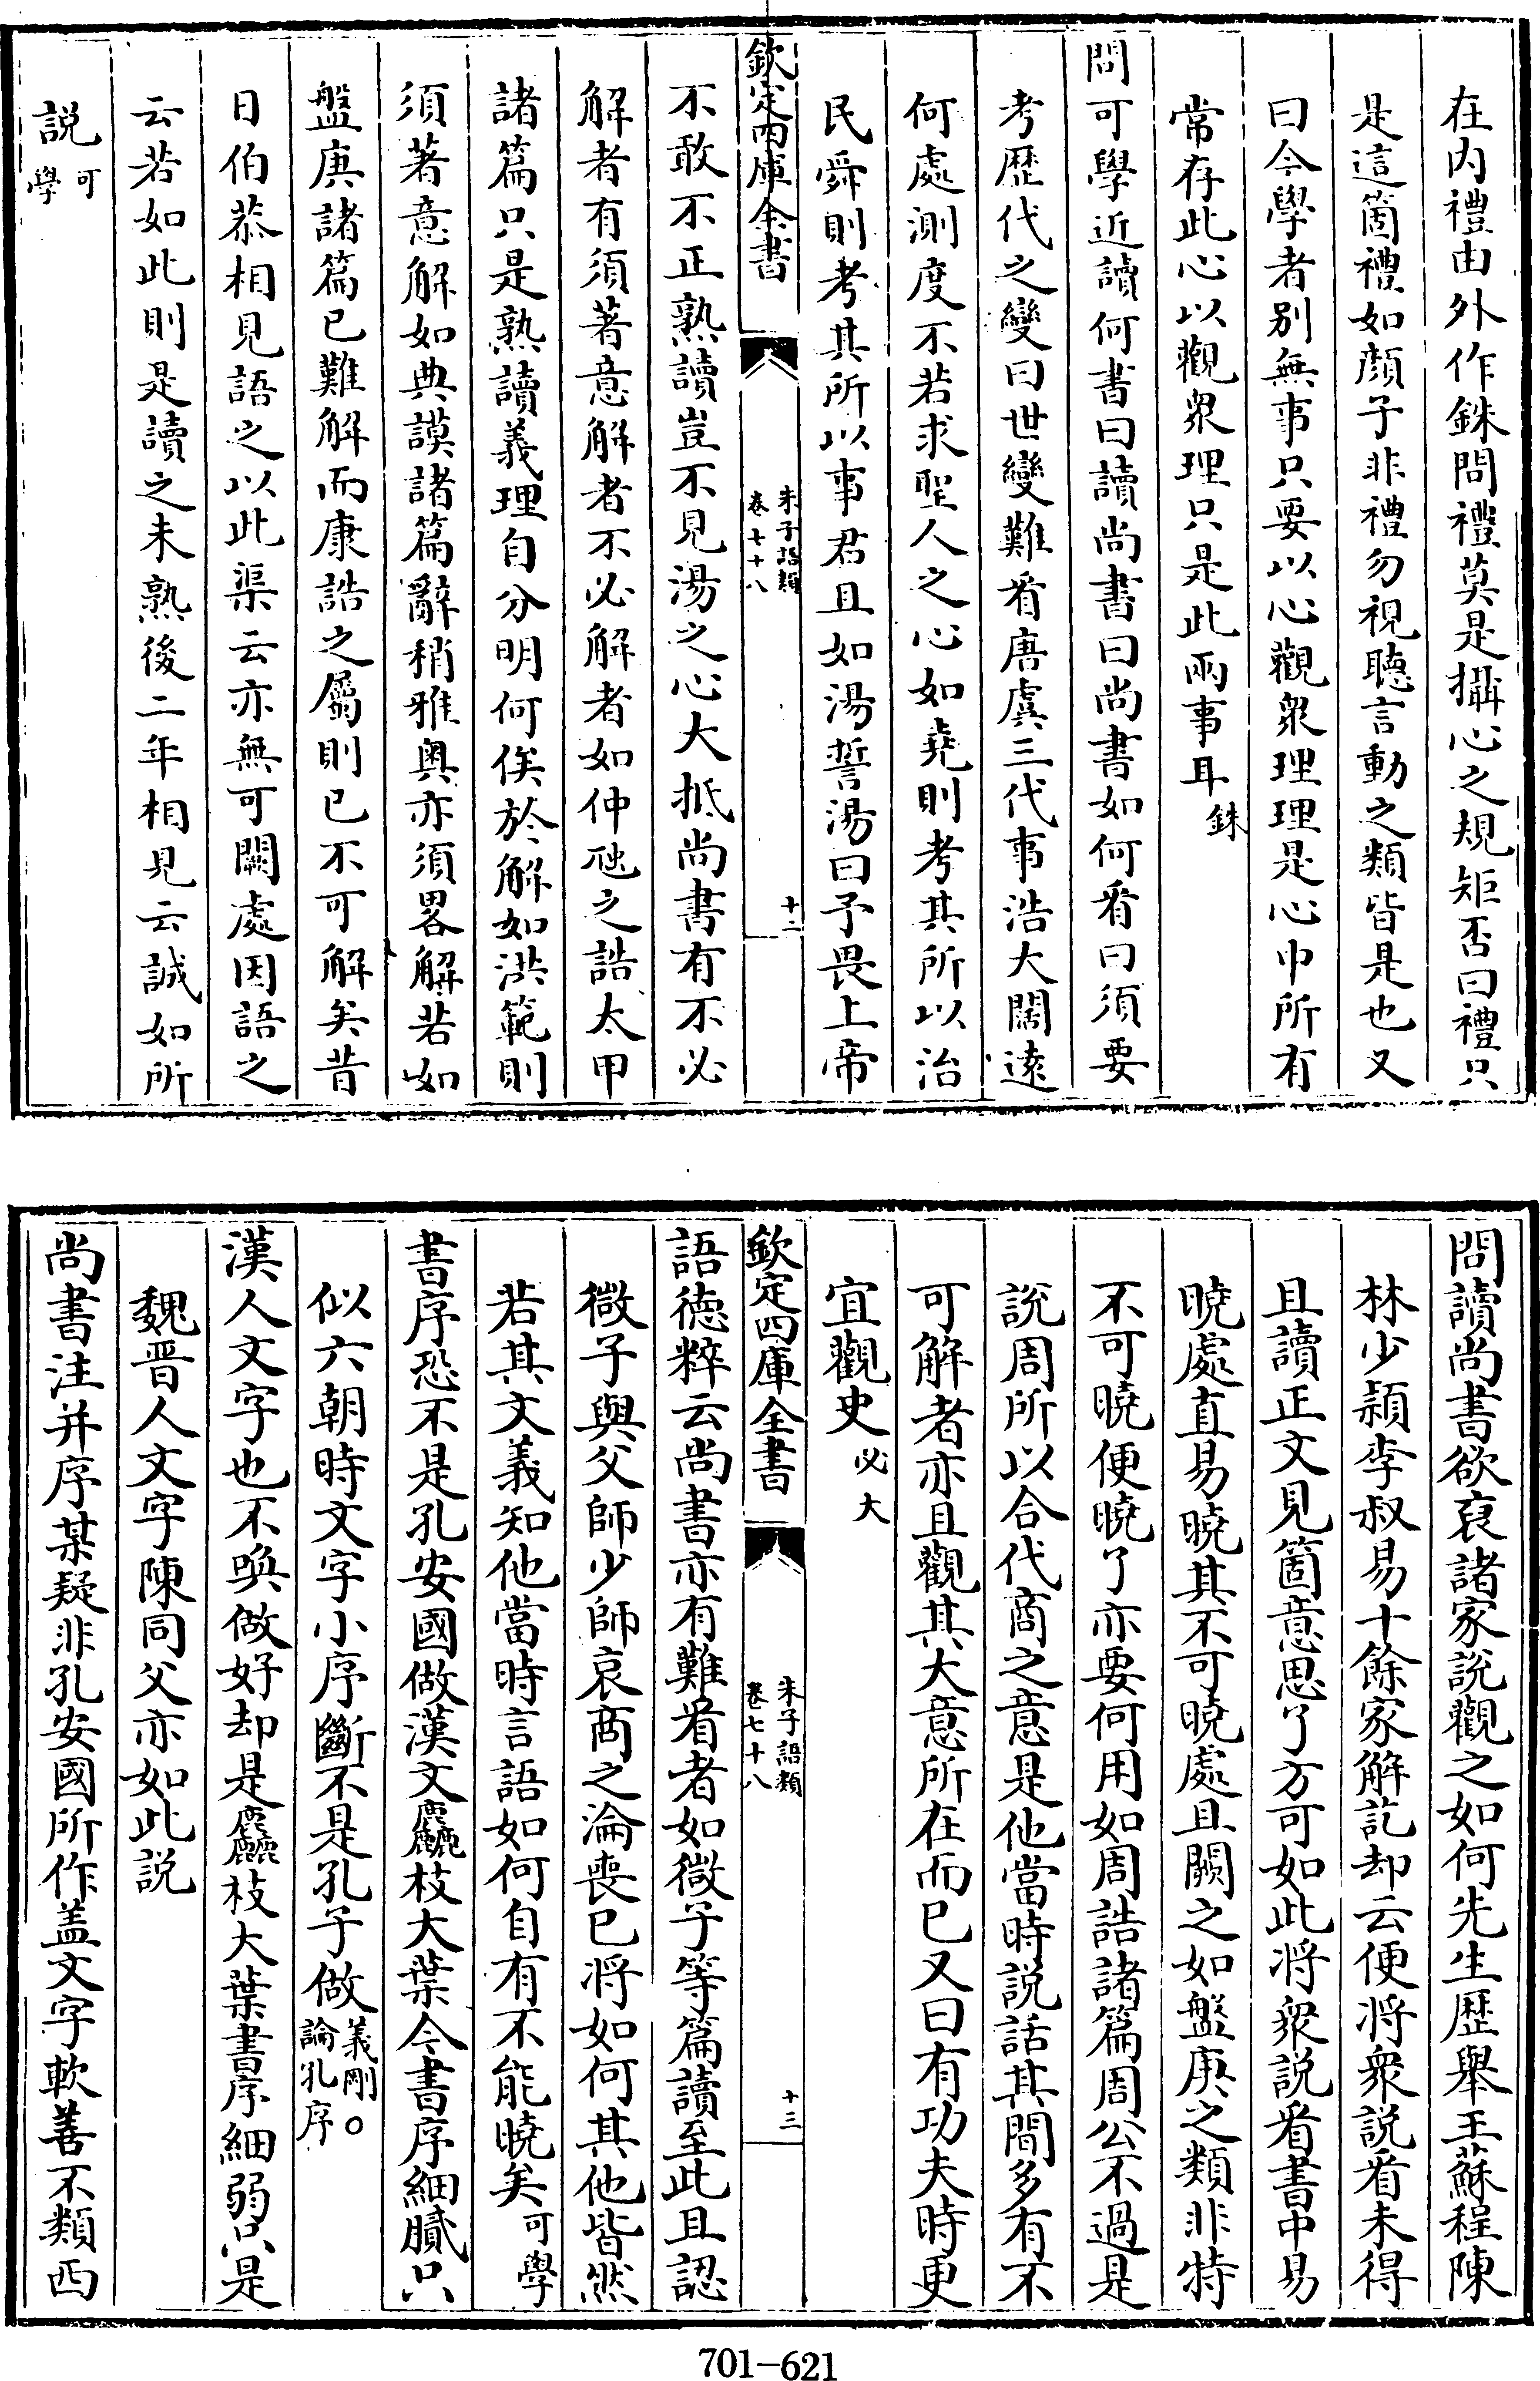 在内禮由外作銖問禮莫是攝心之規矩否曰禮只
是這箇禮如顔子非禮勿視聽言動之類皆是也又
曰今學者别無事只要以心觀衆理理是心中所有
常存此心以觀衆理只是此兩事耳銖
問可學近讀何書曰讀尚書曰尚書如何看曰須要
考歴代之變曰世變難看唐虞三代事浩大濶逺
何處測度不若求聖人之心如堯則考其所以治
民舜則考其所以事君且如湯誓湯曰予畏上帝
欽定四庫全書
朱子語類
卷七十八
十二
不敢不正熟讀豈不見湯之心大抵尚書有不必
解者有須著意解者不必解者如仲虺之誥太甲
諸篇只是熟讀義理自分明何俟於解如洪範則
須著意解如典謨諸篇辭稍雅奥亦須畧解若如
盤庚諸篇已難解而康誥之屬則已不可解矣昔
日伯恭相見語之以此渠云亦無可闕處因語之
云若如此則是讀之未熟後二年相見云誠如所
説可學
問讀尚書欲裒諸家說觀之如何先生歴舉王蘇程陳
林少穎李叔易十餘家解訖却云便将衆説看未得
且讀正文見箇意思了方可如此将衆説看書中易
曉處直易曉其不可曉處且闕之如盤庚之類非特
不可曉便曉了亦要何用如周誥諸篇周公不過是
說周所以合代商之意是他當時説話其間多有不
可解者亦且觀其大意所在而已又曰有功夫時更
宜觀史必大
欽定四庫全書
朱子語類
卷七十八
十三
語徳粹云尚書亦有難看者如微子等篇讀至此且認
微子與父師少師哀商之淪喪已将如何其他皆然
若其文義知他當時言語如何自有不能曉矣可學
書序恐不是孔安國做漢文麤枝大葉今書序細膩只
似六朝時文字小序斷不是孔子做義剛○論孔序
漢人文字也不喚做好却是麤枝大葉書序細弱只是
魏晋人文字陳同父亦如此説
尚書注并序某疑非孔安國所作盖文字軟善不類西
701-621